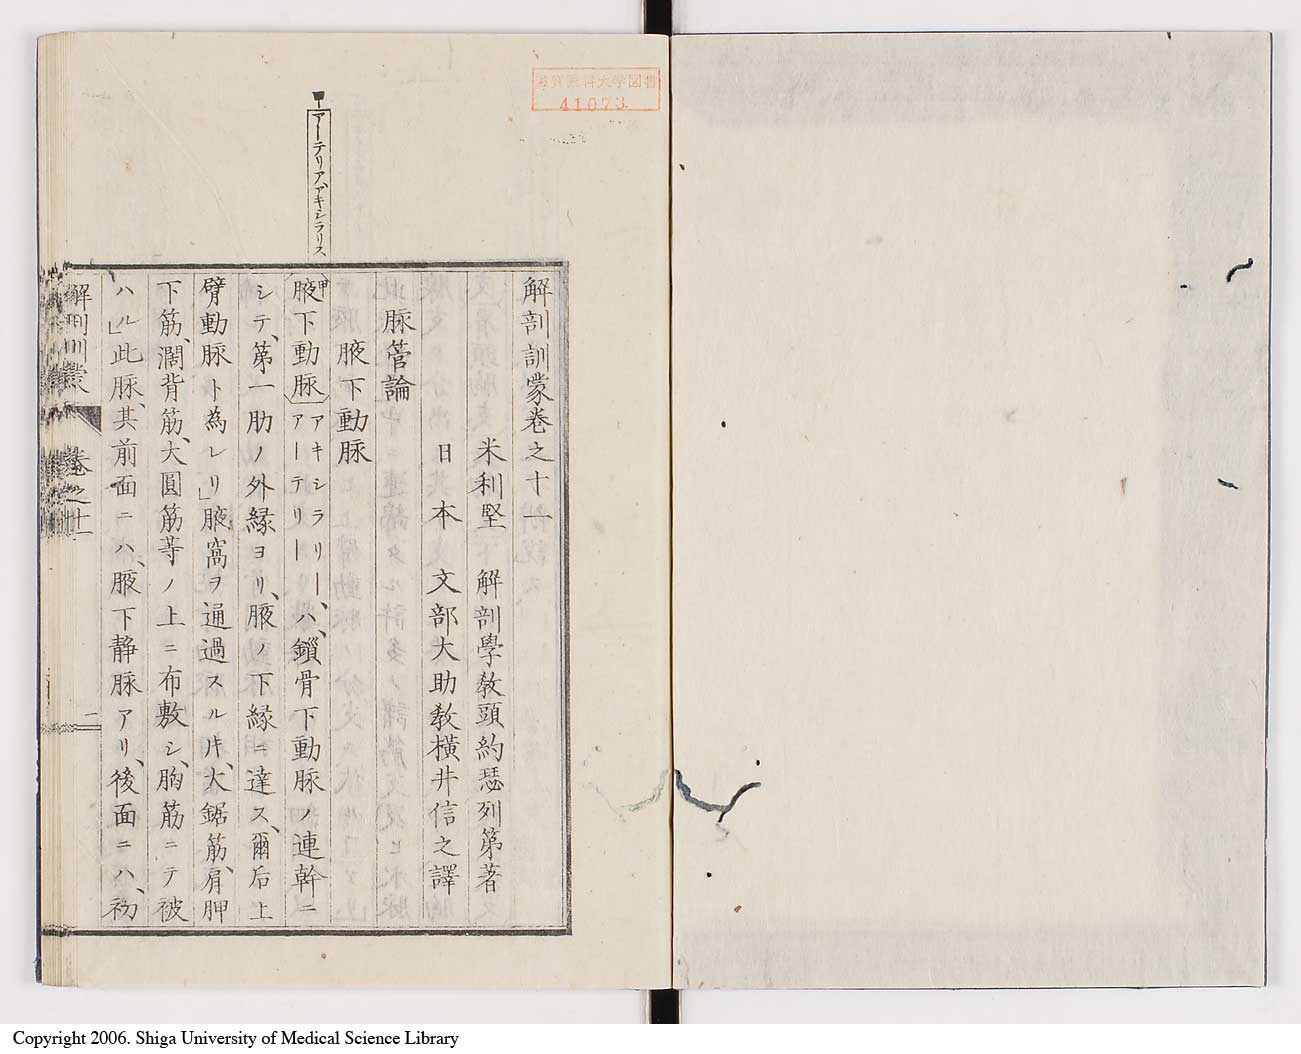 滋賀医科大学図書
41073
甲
アーテリア、アキシラリス
解剖訓蒙巻之十一
米利堅　解剖學教頭約瑟列第著
日本　文部大助教横井信之譯
脉管論
腋下動脉
甲
腋下動脉
アキシラリー、
アーテリー
ハ、鎖骨下動脉ノ連幹ニ
シテ、第一肋ノ外縁ヨリ、腋ノ下縁ニ達ス、爾后上
臂動脉ト為レリ」腋窩ヲ通過スル𪜈、大鋸筋、肩胛
下筋、濶背筋、大圓筋等ノ上ニ布敷シ、胸筋ニテ被
ハル」此脉、其前面ニハ、腋下静脉アリ、後面ニハ、初
解剖訓蒙　巻之十一
二
Copyright 2006. Shiga University of Medical Science Library